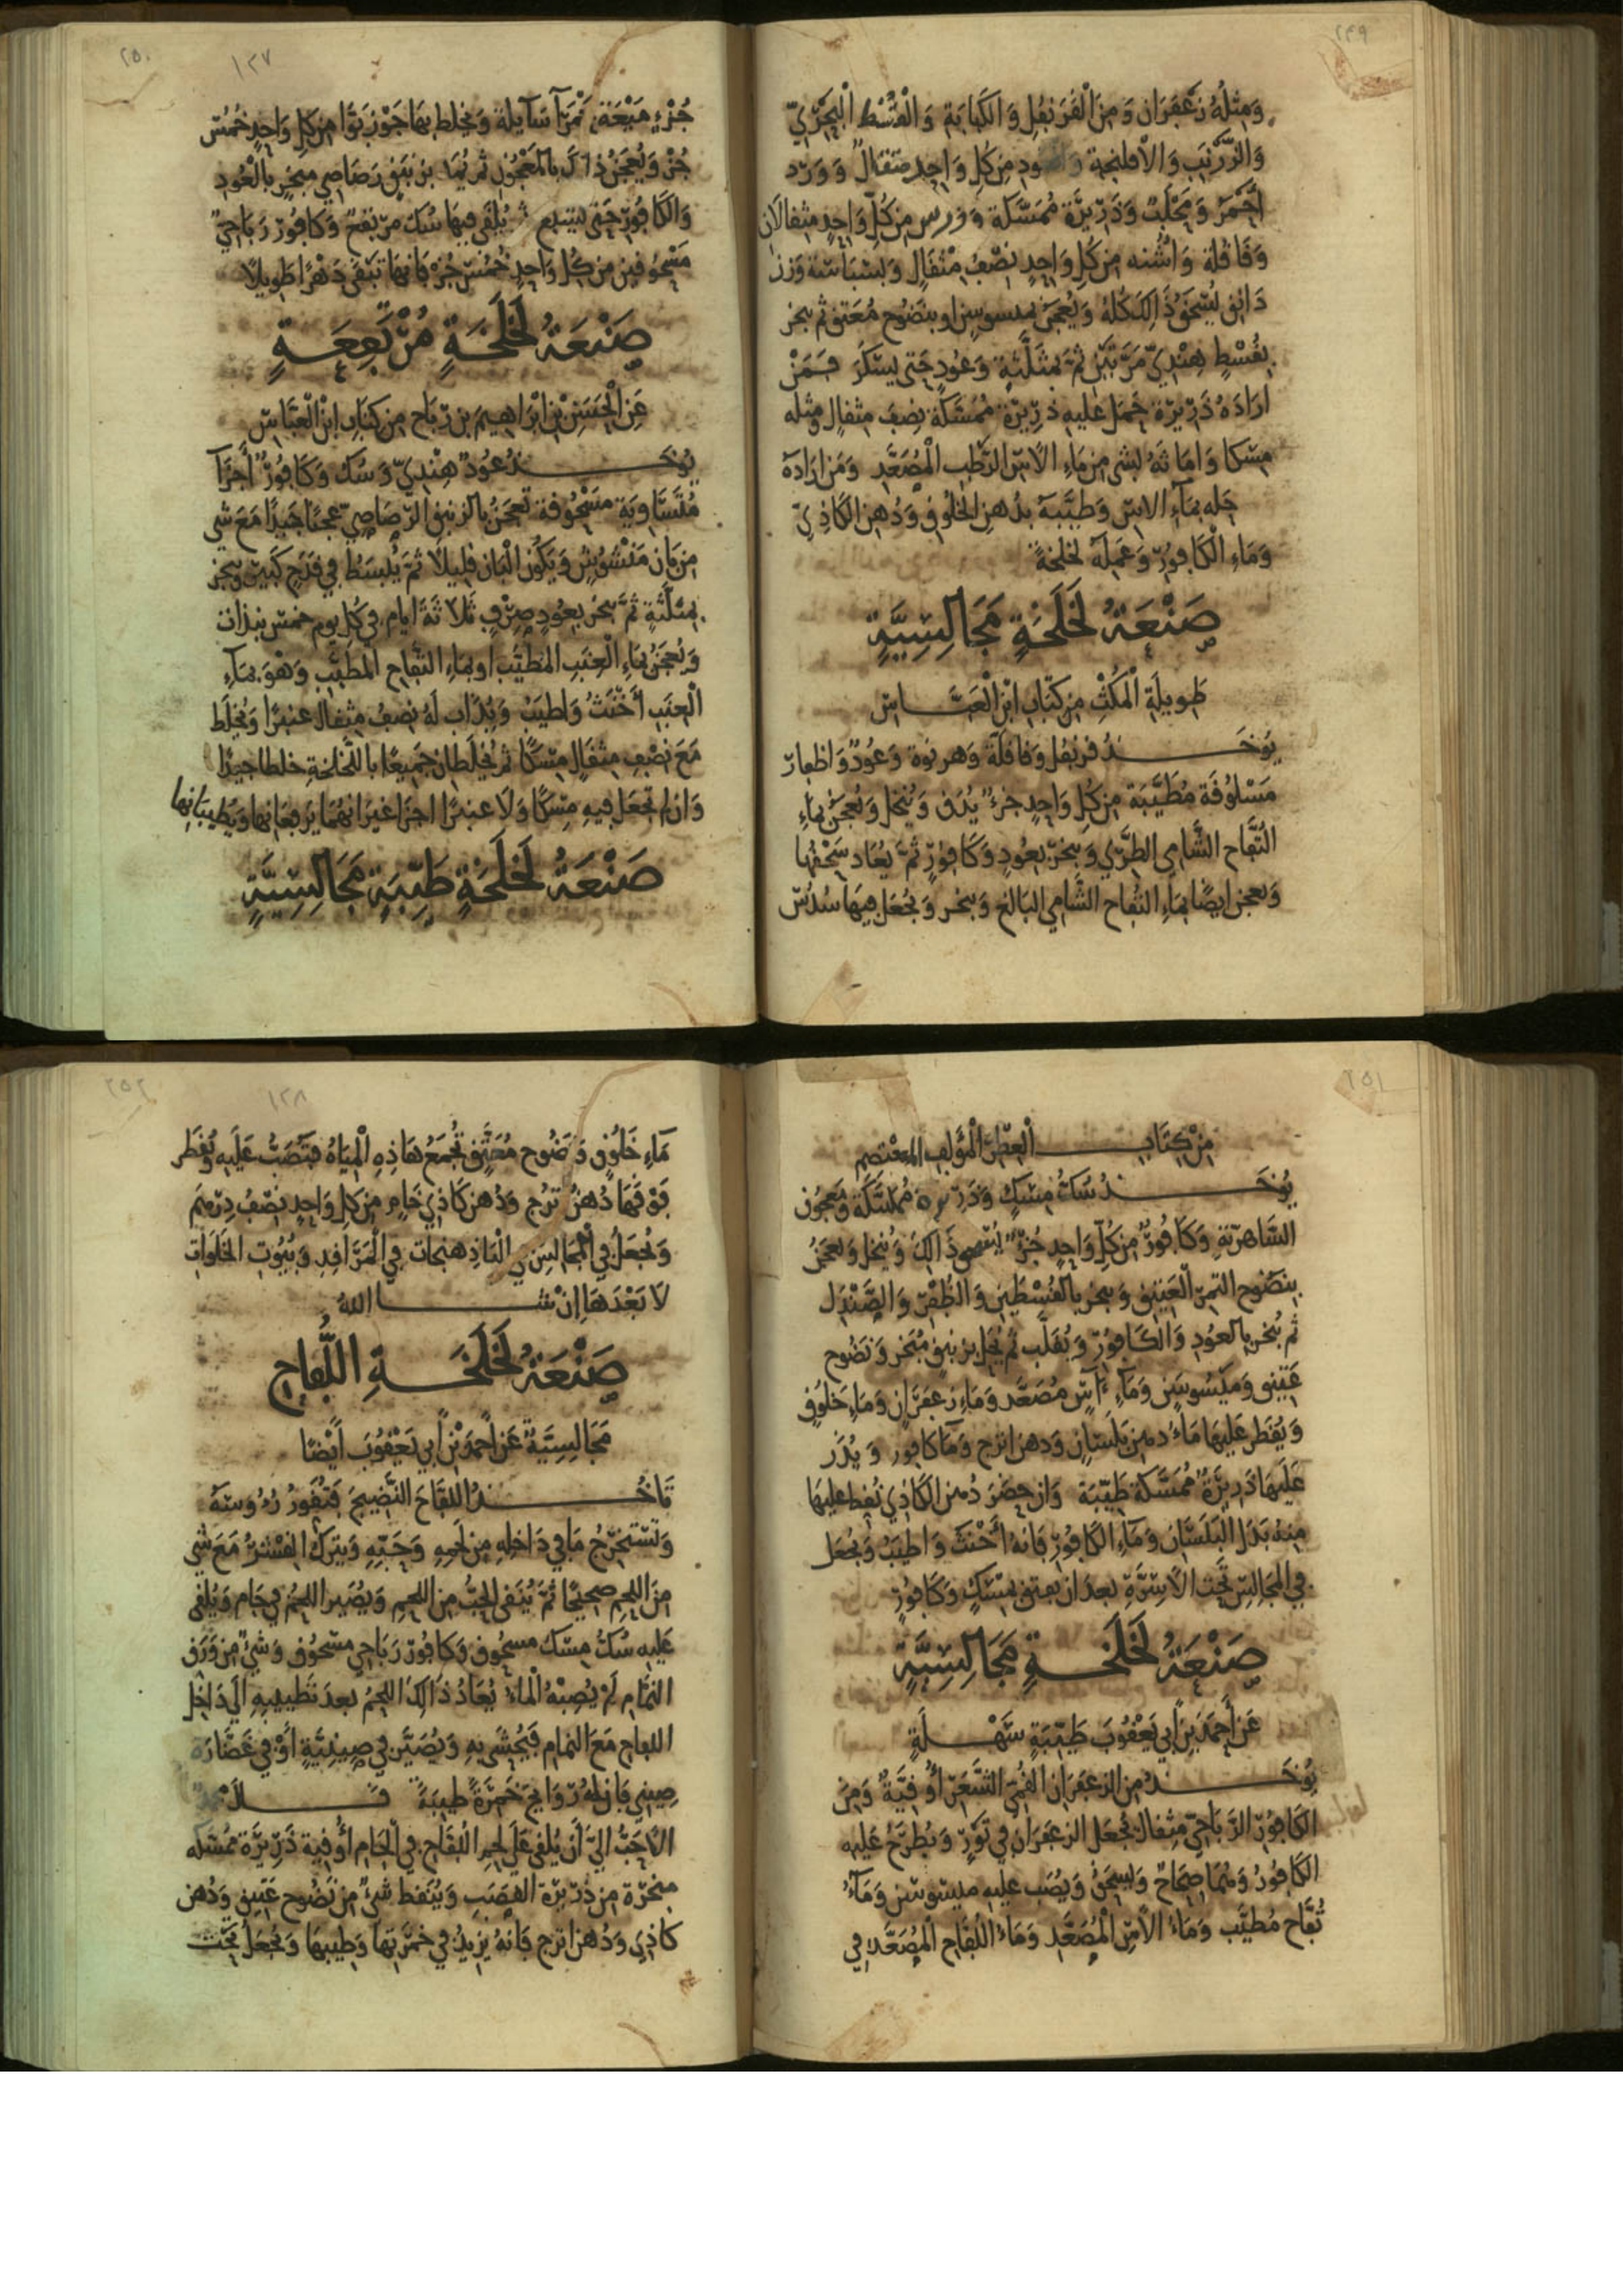 ٢٤٩
وَمِثْلُهُ زَعْفَرَان وَمِنَ الْقَرَنفُل وَالكَبَابَة وَالْقُسْط الْبَحْرِيّ
وَالزَّرْنَبِ وَالافلنجة مِن كُلِ وَاحِدٍ مثقَالٌ وَوَرْد
احْمَرْ وَمَحْلَبٌ وَذَرِيْرَة مُمَسَّكَة وَوَرس مِن كُلّ وَاحِدٍ مثقالَان
وَقَاقلة وَاشْنه مِن كُلِ وَاحِدٍ نِصْفُ مثْقَالٍ وَبَسْبَاسَة وَزن
دَانق يُسْحَقُ ذَالِكَ كُلهُ وَيُعجَن بميسوسن او بنَضُوح مُعَتق ثم يبخر
بقُسْطٍ هِنْدِيّ مَرَّتَيْن ثمَّ بمثَلَّثةٍ وَعُودٍ حَتى يسْكَرَ فَمَنْ
ارَادَهُ ذَرِيْرَة حَمَل عَليه ذرِيْرَة مُمَسَّكَة نِصفَ مثقالٍ ومثله
مِسْكا وَامَاثَهُ بشى مِن مَاءِ الاسِ الرَّطِب الْمُصَعَّدِ وَمَن ارَادَهُ
حَله بمَاءِ الاس وَطيَّبَهُ بدُهن الخَلُوق وَدُهن الكَاذِيّ
وَمَاءِ الْكَافُورِ وَعَمِلَهُ لخلخةً
صَنْعَةُ لَخْلَخَةٍ مَجَالِسِيَّةٍ
طَوِيلَةِ الْمَكْثِ مِن كتَابِ ابْنِ الْعَبَّاسِ
يُوخَذُ قرنفل وَقاقلَة وَهرنوة وَعُودٌ وَاظفار
مَسْلوُقَة مُطَيَّبَة مِن كُلِ وَاحِدٍ جُزءٌ يُدَق وَيُنخَل وَيُعجَنُ بمَاءِ
التُفَّاح الشَّامي الطَّرِي وَيبخرُ بعُودٍ وَكَافورٍ ثمَّ يُعَاد سَحْقُهَا
وَيعجن ايضًا بمَاءِ التُفاح الشَّامي البَالغ وَيبخر وَيُجْعَل فِيهَا سُدُسُ
٢٥٠
١٢٧
جُزْءٍ مَيْعَة حَمْرَآ سَآيلة وَيخلط بهَا جَوْز بَوَّا مِن كلِ وَاحِدٍ خُمُسُ
جُزْءٍ وَيُعجَنُ ذالكَ بالمَعْجُون ثم يُمَد بزنبَق رَصَاصِي مبَخرٍ بالعُودِ
وَالكَافُورِ حَتى ثم يُلقَى فِيهَا سُكٌ مرْتفع وَكَافُورٌ رَبَاحِيٌ
مَسْحُوقين مِن كُل وَاحِدٍ خُمُسُ جُزءٍ فَانهَا تَبْقَى دَهْرًا طَوِيلًا
صَنْعَةُ لَخْلَخَةٍ مُرْتَفِعَةٍ
عَنِ الْحَسَنِ بْنِ ابْرَاهِيمَ بن رَبَاح مِن كِتَابِ ابْنِ الْعَبَّاسِ
يُوخَذُ عُودٌ هِنْدِيٌّ وَسُك وَكَافُورٌ أَجْزَآ
مُتَسَاوِيَة مَسْحُوقة تعجَنُ بالزنبق الرَّصَاصِيّ عجنًا جَيدًا مَعَ شي
مِن بَان مَنْشُوش وَيَكُون الْبَان قليلًا ثمَّ يُبْسَط فِي قدَح كَبير وَيبخر
بمثلَّثةٍ ثمَّ يبخر بعُودٍ صِرْفٍ ثَلَاثَةَ ايام فِي كُلِ يوم خمس نبذات
وَيُعجَنُ بمَاءِ الْعِنَبِ المُطيَّبِ او بمَاءِ التفَّاح المطيَّب وَهوَ بمَآءِ
الْعِنَبِ أَخْنَثُ وَاطيَبُ وَيُذَاب لَهُ نِصْفُ مِثقال عنبرًا وَيُخلَط
مَعَ نِصْفِ مِثقَالٍ مِسْكًا ثم يُخلَطَان جَميعًا باللخلخةِ خلطا جيدًا
وَان لم تجعَل فيهِ مِسْكًا وَلَا عنبرًا اجزَا غيرَ انهُمَا يَرفعَانها وَيُطيبَانِها
صَنْعَةُ لَخْلَخَةٍ طَيِّبَةٍ مَجَالِسِيَّةٍ
٢٥١
مِنْ كِتَابِ الْعِطْرِ الْمُؤَلفِ للمعْتصِم
يُوخَذُ سُكُّ مِسْكٍ وَذَرِيرَة مُمَسَّكَة وَمَعجُون
الشَّاهِريَّةِ وَكَافُورٌ مِن كُلِ وَاحِدٍ جُزْءٌ ذَالكَ وَيُنخل وَيعجَنُ
بنَضُوح التمرِ الْعَتِيق وَيبخر بالقُسْطَين وَالظُفْرِ وَالصَّنْدَل
ثم يُبخر بالعُودِ وَالْكَافُورِ وَيُقلَّب ثم يُحَل بزنبق مُبَخر وَنَضُوح
عَتِيق وَمَيْسُوسَن وَمَآءِ آس مُصَعَّد وَمَاءِ زعفَرَان وَمَاءِ خَلوُقٍ
وَيُقطر عَليهَا مَاءُ دهن بَلَسَان وَدهن اترج وَمآ كافور وَيُذَر
عَليهَا ذَرِيرَةٌ مُمَسَّكَة طَيِّبَة وَان حضَرَ دُهن الكَاذِي نُقِط عليهَا
مِنهُ بَدَل البَلسَان وَمَاءِ الكَافُورِ فَانهُ أَخْنَث وَاطيَبُ وَيُجعَل
فِي المجَالِس تَحْتَ الاسِرَّةِ بعدَ ان يعتق بمسْكٍ وَكَافُورٍ
صَنْعَةُ لَخْلَخَةٍ مَجَالِسِيَّةٍ
عَن أَحْمَدَ بنِ أَبي يَعْقُوبَ طَيِّبَةٍ سَهْلَةٍ
يُوخَذُ مِن الزعفَرَان القُمِّي الشَّعَرِ أُوقيَّةٌ وَمِنَ
الكَافُورِ الرَّبَاحِيّ مِثقَالٌ يُجعَل الزعفَرَان فِي تَوْرٍ وَيُطرَحُ عَليهِ
الكَافُورُ وَهُمَا صِحَاحٌ وَيسحَقُ وَيُصَب عليهِ ميسُوسَن وَمَآءُ
تُفَّاح مُطيَّب وَمَاءُ الاسِ الْمُصَعَّد وَمَاءُ اللُفَّاح الْمُصَعَّدِ فِي
٢٥٢
١٢٨
مَاءِ خَلُوقٍ وَنَضُوح مُعَتَّق تُجْمَعُ هَاذِهِ الْمِيَاهُ فَتُصَبُّ عَلَيهِ وَيُقطَر
فَوْقَهَا دُهنُ ترُنج وَدُهن كَاذِي خَامٍ مِن كلِ وَاحِدٍ نِصْفُ دِرْهَم
وَيُجْعَلُ فِي الْمجَالس فِي البَاذِهنجَات فِي الْمَرَاقِدِ وَبُيُوتِ الخَلَوَاتِ
لَا بَعْدَهَا إِنْ شَا اللهُ
صَنْعَةُ لَخْلَخَةِ اللُّفَاحِ
مَجَالِسِيَّةٌ عَن أَحْمَدَ بْنِ أَبي يَعْقُوبَ أَيْضًا
تَاخُذُ اللفَّاحَ النَّضِيجَ فَتُقَوِّرُ رُءُوسَهُ
وَتَسْتَخْرِجُ مَا فِي دَاخِلِهِ مِن لحَمِهِ وَحَبِّهِ وَيترَك القِشْرُ مَعَ شي
مِنَ اللحِم صحِيحًا ثمَّ يُنقى الحَبُّ مِنَ اللحمِ وَيُصَير اللحمُ فِي جَامٍ وَيُلقى
عَليه سُكُّ مِسْك مسحُوق وَكَافُورٌ رَبَاحِي مسْحُوق وَشيْءٌ مِن وَرَق
النمَّام لَمْ يُصِبْهُ الْمَاءُ يُعَادُ ذَالكَ اللحمُ بعدَ تَطييبهِ الَى دَاخل
اللفاح مَعَ النمام فَيُحْشَى بهِ وَيُصَيَّر فِي صِينِيَّةٍ أَوْ فِي غَضَارَة
صِيني فَان لهُ رَوَايحَ خَمِرَةً طيبَةً قَــلَ
الأَحَبُّ اليَّ أَن يُلقى عَلَى لحمِ اللفَاح فِي الْجَام أُوقية ذَرِيْرَة مُمَسَّكه
مبخرَة مِن ذرِيْرَة القصَبِ وَيُنقط شيْءٌ مِن نَضُوح عَتيقٍ وَدُهن
كاذِي وَدُهن اترج فَانهُ يَزيدُ فِي خمرَتها وَطِيبِهَا وَيُجْعَلُ تحْتَ